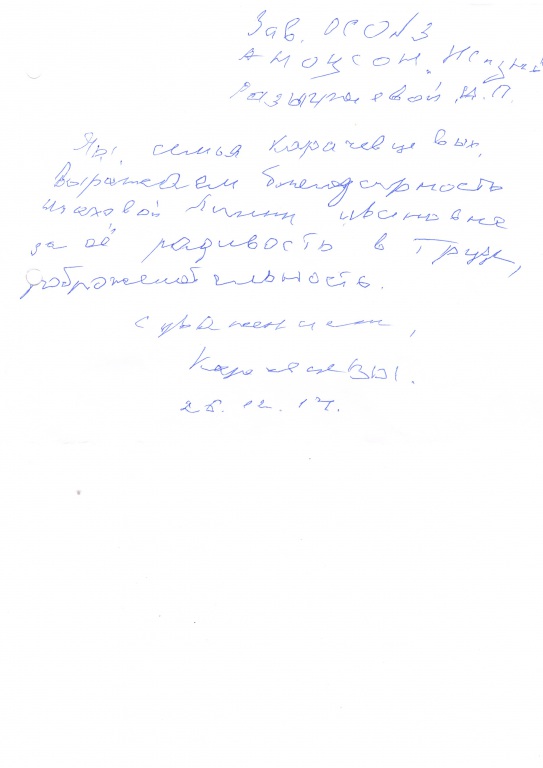 Зав. ОСО №3
АНО ЦСОН
Разынаевой Н.П.
Мы, семья Карачевцевых,
выражаем благодарность
Ивановне
за её радивость в труде,
доброжелательность.
с уважением,
Карачевцевы.
26.12.17.